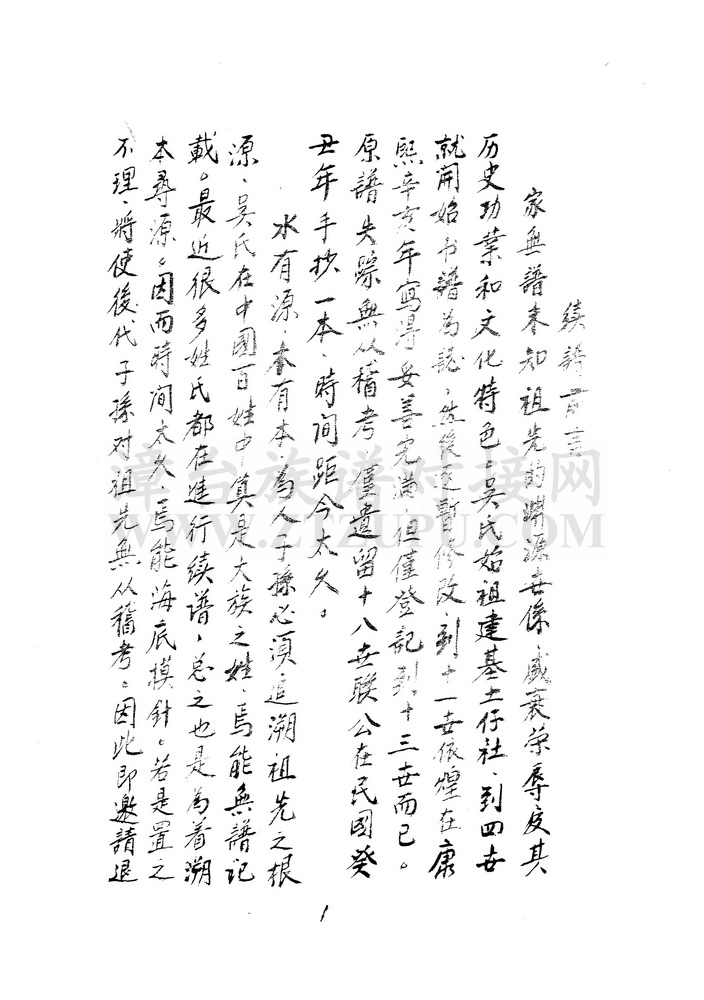 续譜前言
家無譜未知祖先的渊源世係、盛衰荣辱及其
历史功業和文化特色。吴氏始祖建基土仔社、到四世
就開始书譜為誌、然後逐暫修改、到十一世振煌在康
熙辛亥年寫得妥善完满、但僅登記到十三世而已。
原譜失踪無从稽考、僅遺留十八世联公在民國癸
丑年手抄一本、時间距今太久。
水有源、木有本、為人子孫必须追溯祖先之根
源、吴氏在中國百姓中算是大族之姓、焉能無譜記
載。最近很多姓氏都在進行续谱，总之也是為着溯
本尋源。因而時间太久、焉能海底摸针。若是置之
不理、將使後代子孫对祖先無从稽考。因此即邀請退
1
漳台族谱对接网
WWW.ZTZUPU.COM